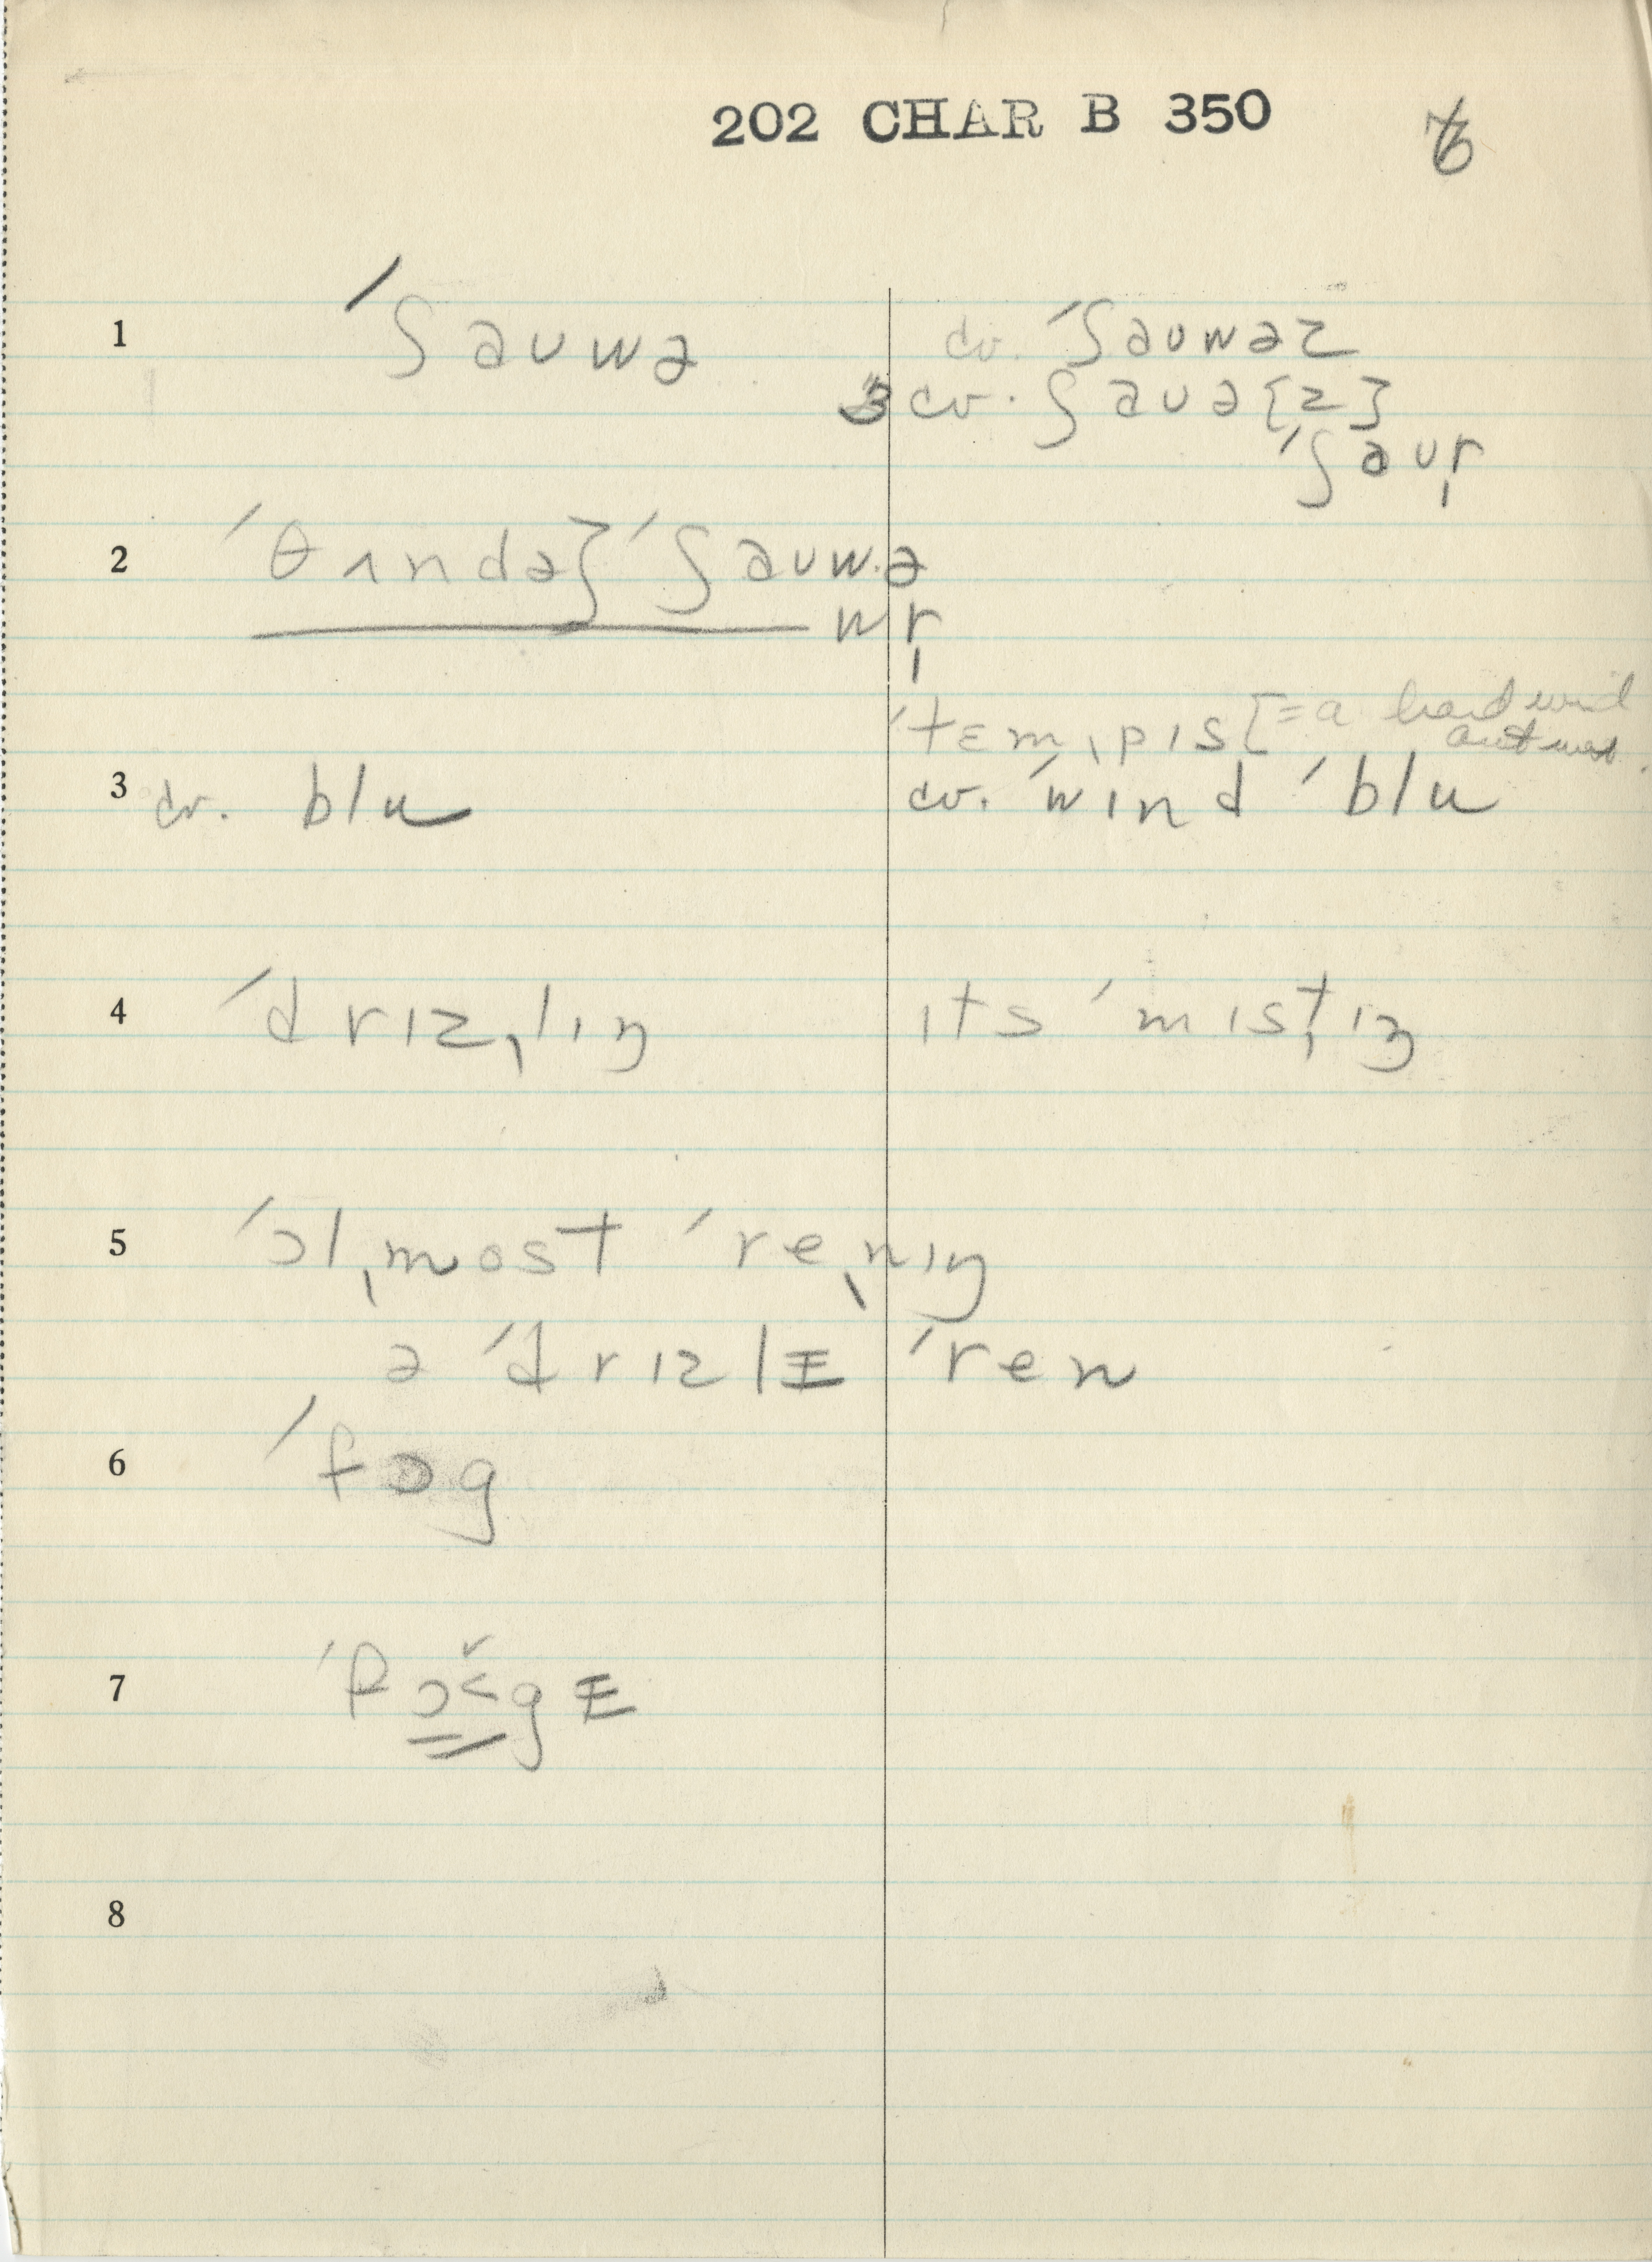 202 CHAR B 350
1 ˈʃauwə cv. ˈʃauwəz
3 cv. ʃauə{z}
ˈʃaur̩
2 ˈθʌndəʒ ˈʃauwə
wr̩
ˈtɛmˌpɪs [= a hard wind
3 cv. blu cv. ˈwɪnd ˈblu
4 ˈdrɪzˌlɪŋ ɪts ˈmɪsˌtɪŋ
5 ˈɔlˌmost ˈreˌnɪŋ
ə ˈdrɪzlɪ ˈren
6 ˈfɔg
7 ˈfɔgɪ
8